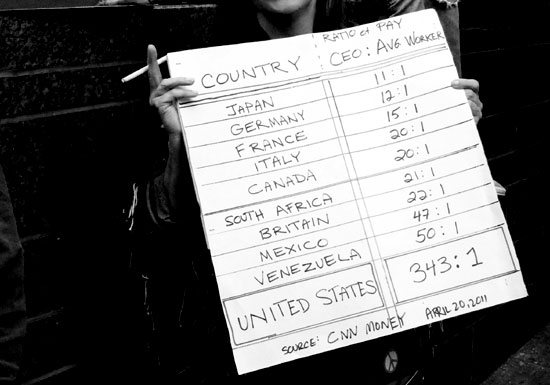 RATIO of PAY
COUNTRY CEO : AVG. WORKER
JAPAN 11:1
GERMANY 12:1
FRANCE 15:1
ITALY 20:1
CANADA 20:1
SOUTH AFRICA 21:1
BRITAIN 22:1
MEXICO 47:1
VENEZUELA 50:1
UNITED STATES 343:1
SOURCE: CNN MONEY APRIL 20, 2011